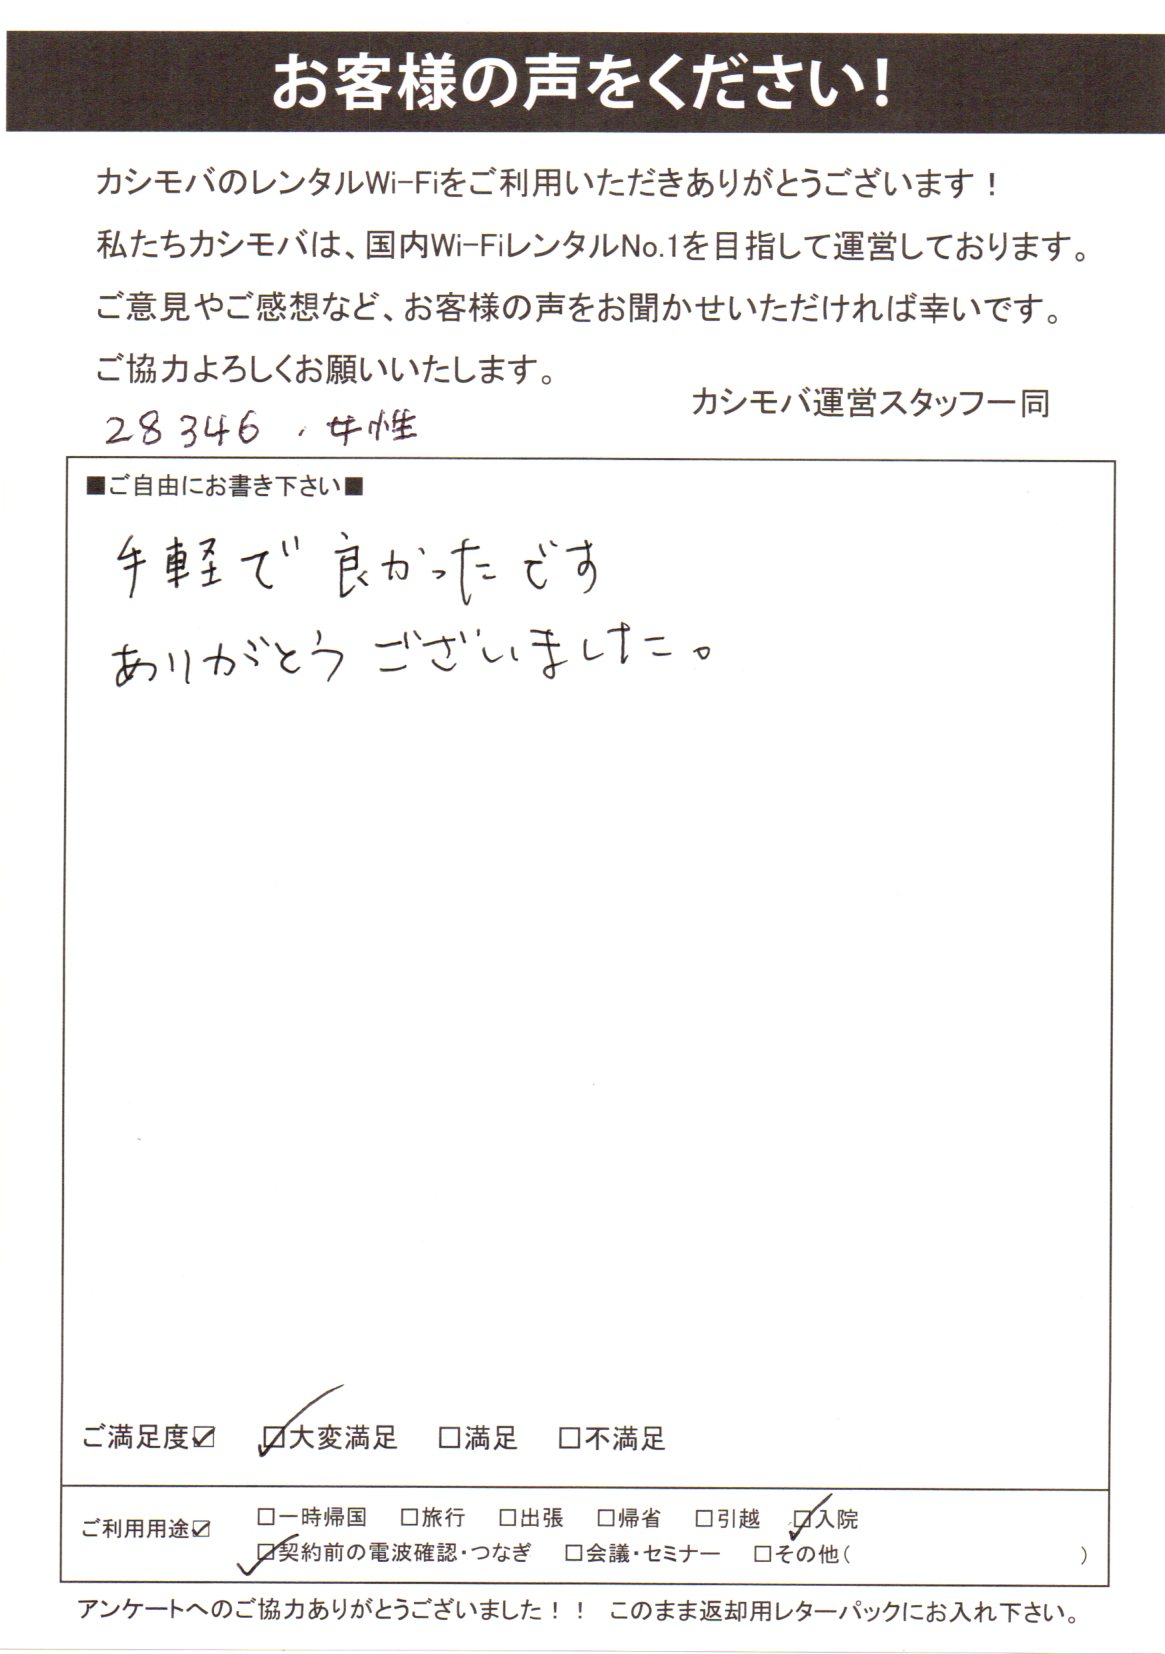 お客様の声をください!
カシモバのレンタルWi-Fiをご利用いただきありがとうございます！
私たちカシモバは、国内Wi-FiレンタルNo.1を目指して運営しております。
ご意見やご感想など、お客様の声をお聞かせいただければ幸いです。
ご協力よろしくお願いいたします。
カシモバ運営スタッフ一同
28346 、女性
■ご自由にお書き下さい■
手軽で 良かったです
ありがとう ございました。
ご満足度☑ ☑大変満足 □満足 □不満足
ご利用用途☑ □一時帰国 □旅行 □出張 □帰省 □引越 ☑入院
☑契約前の電波確認・つなぎ □会議・セミナー □その他( )
アンケートへのご協力ありがとうございました！！ このまま返却用レターパックにお入れ下さい。